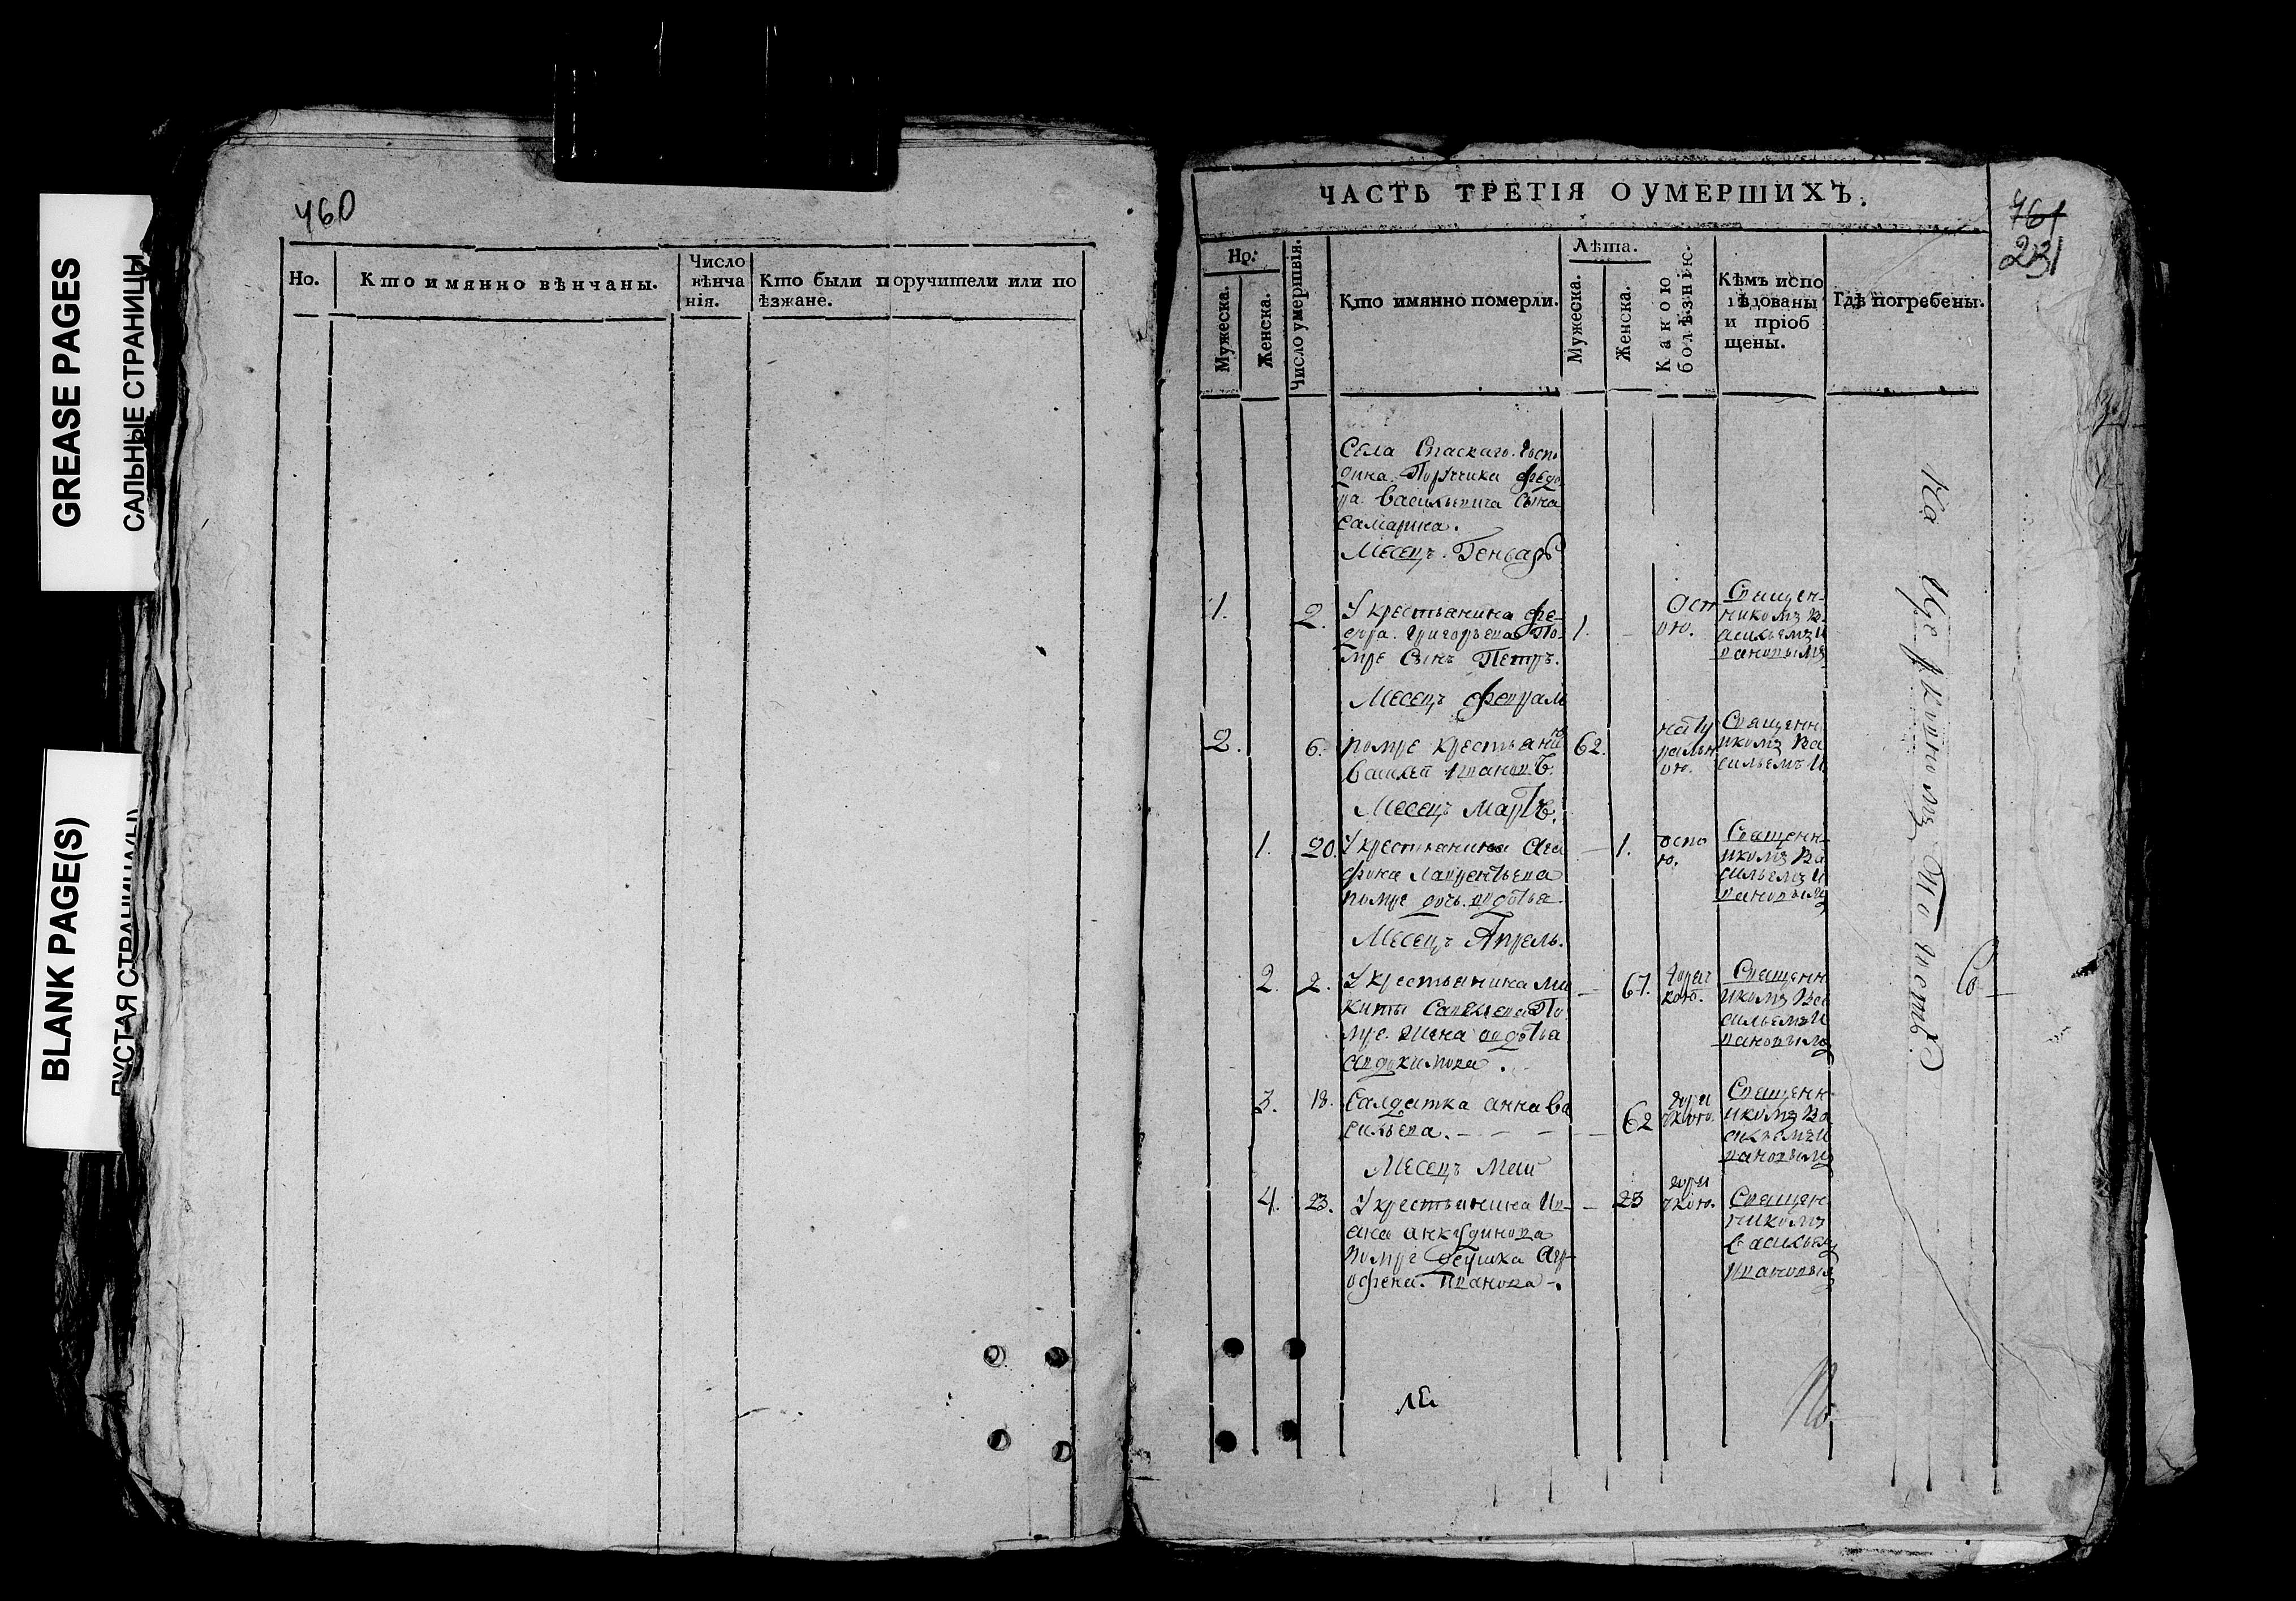 GREASE PAGES
САЛЬНЫЕ СТРАНИЦЫ
BLANK PAGE(S)
ПУСТАЯ СТРАНИЦА(Ы)
460
Но.
Кто имянно вѣнчаны.
Число
вѣнча
нія.
Кто были поручители или по
ѣзжане.
ЧАСТЬ ТРЕТІЯ О УМЕРШИХЪ.
461
231
Но:
Мужеска.
Женска.
Число умершвія.
Кто имянно померли.
Лѣта.
Мужеска.
Женска.
Какою
болѣзнію.
Кѣмъ испо
вѣдованы
и пріоб
щены.
Гдѣ погребены.
Села Спаскаго. Госпо
дина. Порутчика Федо
ра. Васильевича Сына
Самарина.
Месецъ. Генварь
1. 2. У крестьянина Фе-
дора. Григорьева По-
мре Сынъ Петръ. 1. -
Осп
ою.
Священ-
никомъ В-
асильемъ И
вановымъ
Месецъ Февраль
2. 6. помре крестьянин
Василей Ивановъ. 62.
нату
ральн
ою.
Священн
икомъ Ва
сильемъ И
Месецъ Мартъ.
1. 20. У крестьянина Ага
фона Лаврентьева
помре дочь. Авдотья. - 1.
оспо
ю.
Священн-
икомъ Ва
сильемъ И
вановымъ
Месецъ Апрель.
2. 2. У крестьянина Ми
киты Савельева По
мре. жена Авдотья
Авдокимова. - 67.
Горяч
кою.
Священн
икомъ Ва
сильемъ И
вановымъ
3. 18. Салдатка Анна Ва
сильева. - - - - 62
горя
чкою.
Священн-
икомъ Ва
сильемъ И
вановымъ
Месецъ Маи
4. 23. У крестьянина Ив-
ана Анкудинова
помре девушка Агр-
офена. Иванова -. - 23
горя
чкою.
Священ
никомъ
Васильем
Ивановым
На Церковномъ Погостѣ